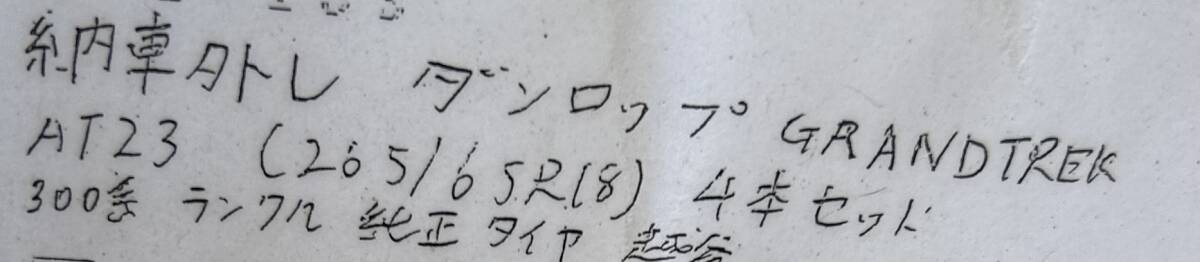 納車外トレ ダンロップ GRANDTREK
AT23 (265/65R18) 4本セット
300系 ランクル 純正タイヤ